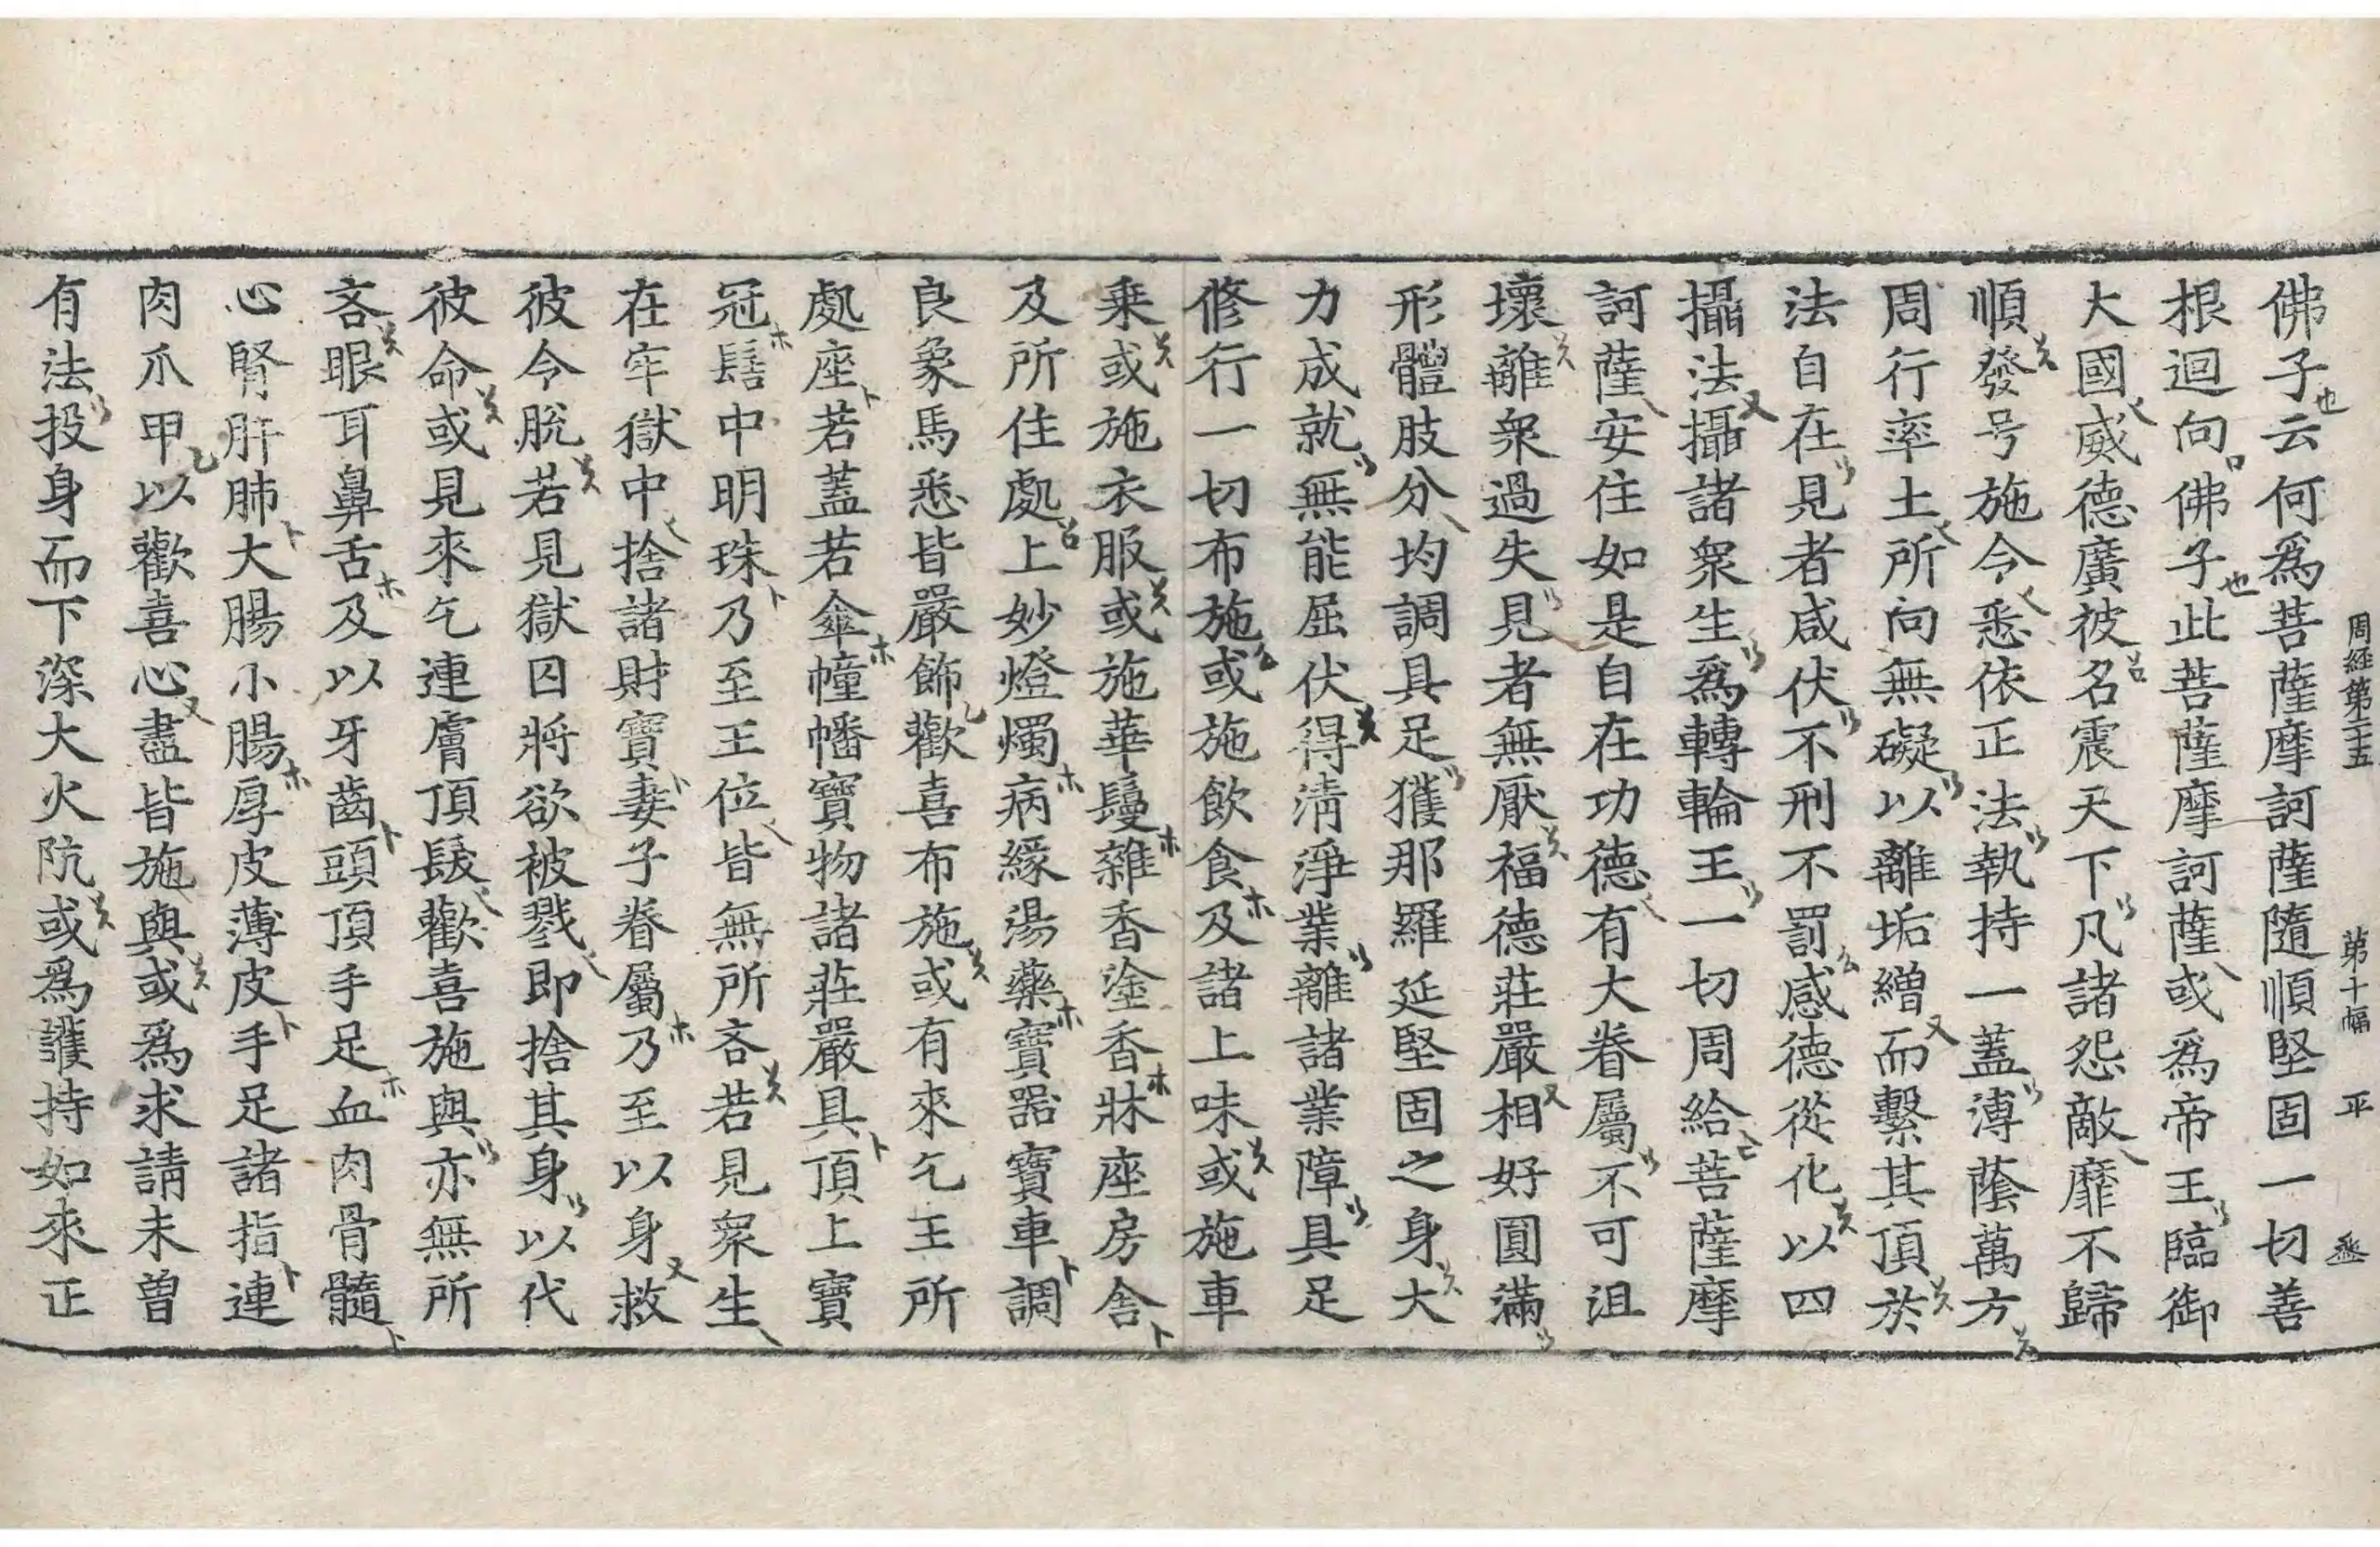 周経第二十五　第十幅　平
佛子云何爲菩薩摩訶薩隨順堅固一切善
根迴向佛子此菩薩摩訶薩或爲帝王臨御
大國威德廣被名震天下凡諸怨敵靡不歸
順發号施令悉依正法執持一蓋溥蔭萬方
周行率土所向無礙以離垢繒而繫其頂於
法自在見者咸伏不刑不罰感德從化以四
攝法攝諸衆生爲轉輪王一切周給菩薩摩
訶薩安住如是自在功德有大眷屬不可沮
壞離衆過失見者無厭福德莊嚴相好圓滿
形體肢分均調具足獲那羅延堅固之身大
力成就無能屈伏得清淨業離諸業障具足
修行一切布施或施飲食及諸上味或施車
乗或施衣服或施華鬘雜香塗香牀座房舍
及所住處上妙燈燭病緣湯藥寶器寶車調
良象馬悉皆嚴飾歡喜布施或有來乞王所
處座若蓋若傘幢幡寶物諸莊嚴具頂上寶
冠髻中明珠乃至王位皆無所吝若見衆生
在牢獄中捨諸財寶妻子眷屬乃至以身救
彼令脫若見獄囚將欲被戮即捨其身以代
彼命或見來乞連膚頂髮歡喜施與亦無所
吝眼耳鼻舌及以牙齒頭頂手足血肉骨髓
心腎肝肺大腸小腸厚皮薄皮手足諸指連
肉爪甲以歡喜心盡皆施與或爲求請未曾
有法投身而下深大火阬或爲護持如來正